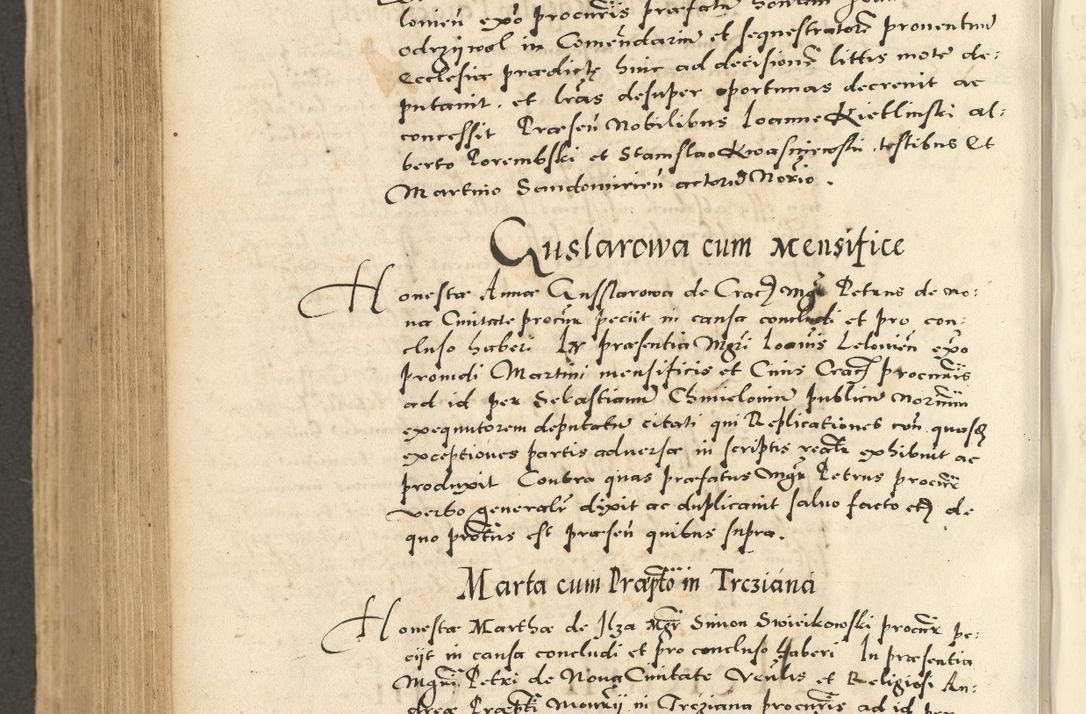 lovien expo procuris præfatu honum
odrzywol in Comendariu et sequestratore proventuu
Ecclesiæ prædictę huic ad decisione littis mote de-
putavit. et lras desuper oportunas decrevit ac
concessit Præsen Nobilibus Ioanne Kietlinski al-
berto Porembski et Stanislao Kwasniewski testibus Et
Martino Sandomirien actorum Norio.
Guslarowa cum Mensifice
Honestæ Annæ Gusslarowa de Crac Mgr Petrus de No-
va Civitate procur peciit in causa concludi et pro con-
cluso haberi In præsentia Mgri Ioanis Lelovien expo
providi Martini mensificis et Civis Crac procuris
ad id per Sebastianu Chmielowiu publicu Norium
exequutorem deputatu citati qui Replicationes con quasq
exceptiones partis adversæ in scriptis realr exhibuit ac
produxit Contra quas præfatus Mgr Petrus procur
verbo generalr dixit ac duplicavit salvo facto etc de
quo protus est præsen quibus supra.
Marta cum Præpto in Trcziana
Honestæ Marthæ de Ilza Mgr Simon Swieikowski procur pe-
ciit in causa concludi et pro concluso haberi In præsentia
Mgri Petri de Nova Civitate Venlis et Religiosi An-
dreæ Præpti Monrii in Trcziana procuris ad id per